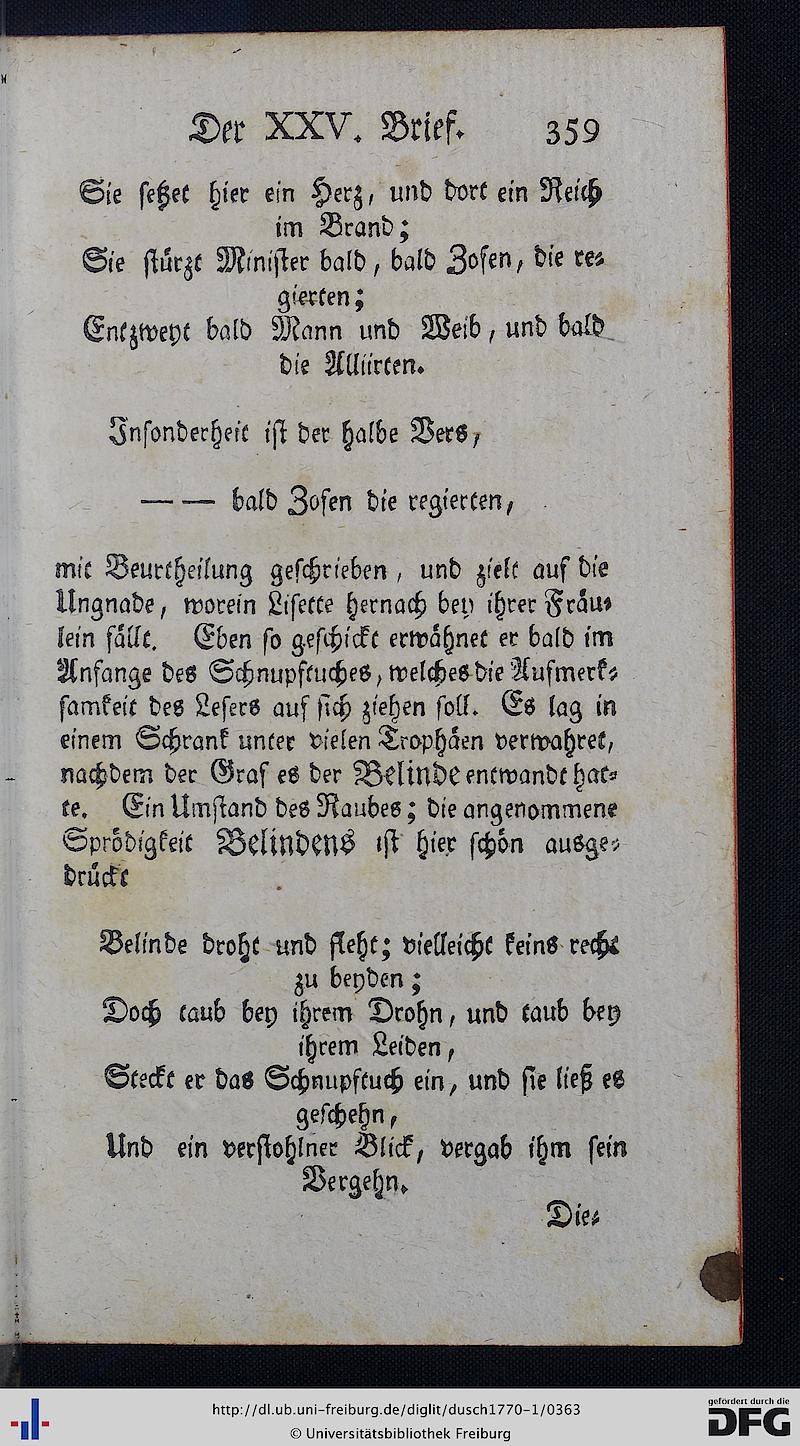 Der XXV. Brief. 359
Sie setzet hier ein Herz, und dort ein Reich
im Brand;
Sie stürzt Minister bald, bald Zofen, die re-
gierten;
Entzweyt bald Mann und Weib, und bald
die Alliirten.
Insonderheit ist der halbe Vers,
— — bald Zofen die regierten,
mit Beurtheilung geschrieben, und zielt auf die
Ungnade, worein Lisette hernach bey ihrer Fräu-
lein fällt. Eben so geschickt erwähnet er bald im
Anfange des Schnupftuches, welches die Aufmerk-
samkeit des Lesers auf sich ziehen soll. Es lag in
einem Schrank unter vielen Trophäen verwahret,
nachdem der Graf es der Belinde entwandt hat-
te. Ein Umstand des Raubes; die angenommene
Sprödigkeit Belindens ist hier schön ausge-
drückt
Belinde droht und fleht; vielleicht keins recht
zu beyden;
Doch taub bey ihrem Drohn, und taub bey
ihrem Leiden,
Steckt er das Schnupftuch ein, und sie ließ es
geschehn,
Und ein verstohlner Blick, vergab ihm sein
Vergehn.
Die-
http://dl.ub.uni-freiburg.de/diglit/dusch1770-1/0363
© Universitätsbibliothek Freiburg
gefördert durch die
DFG